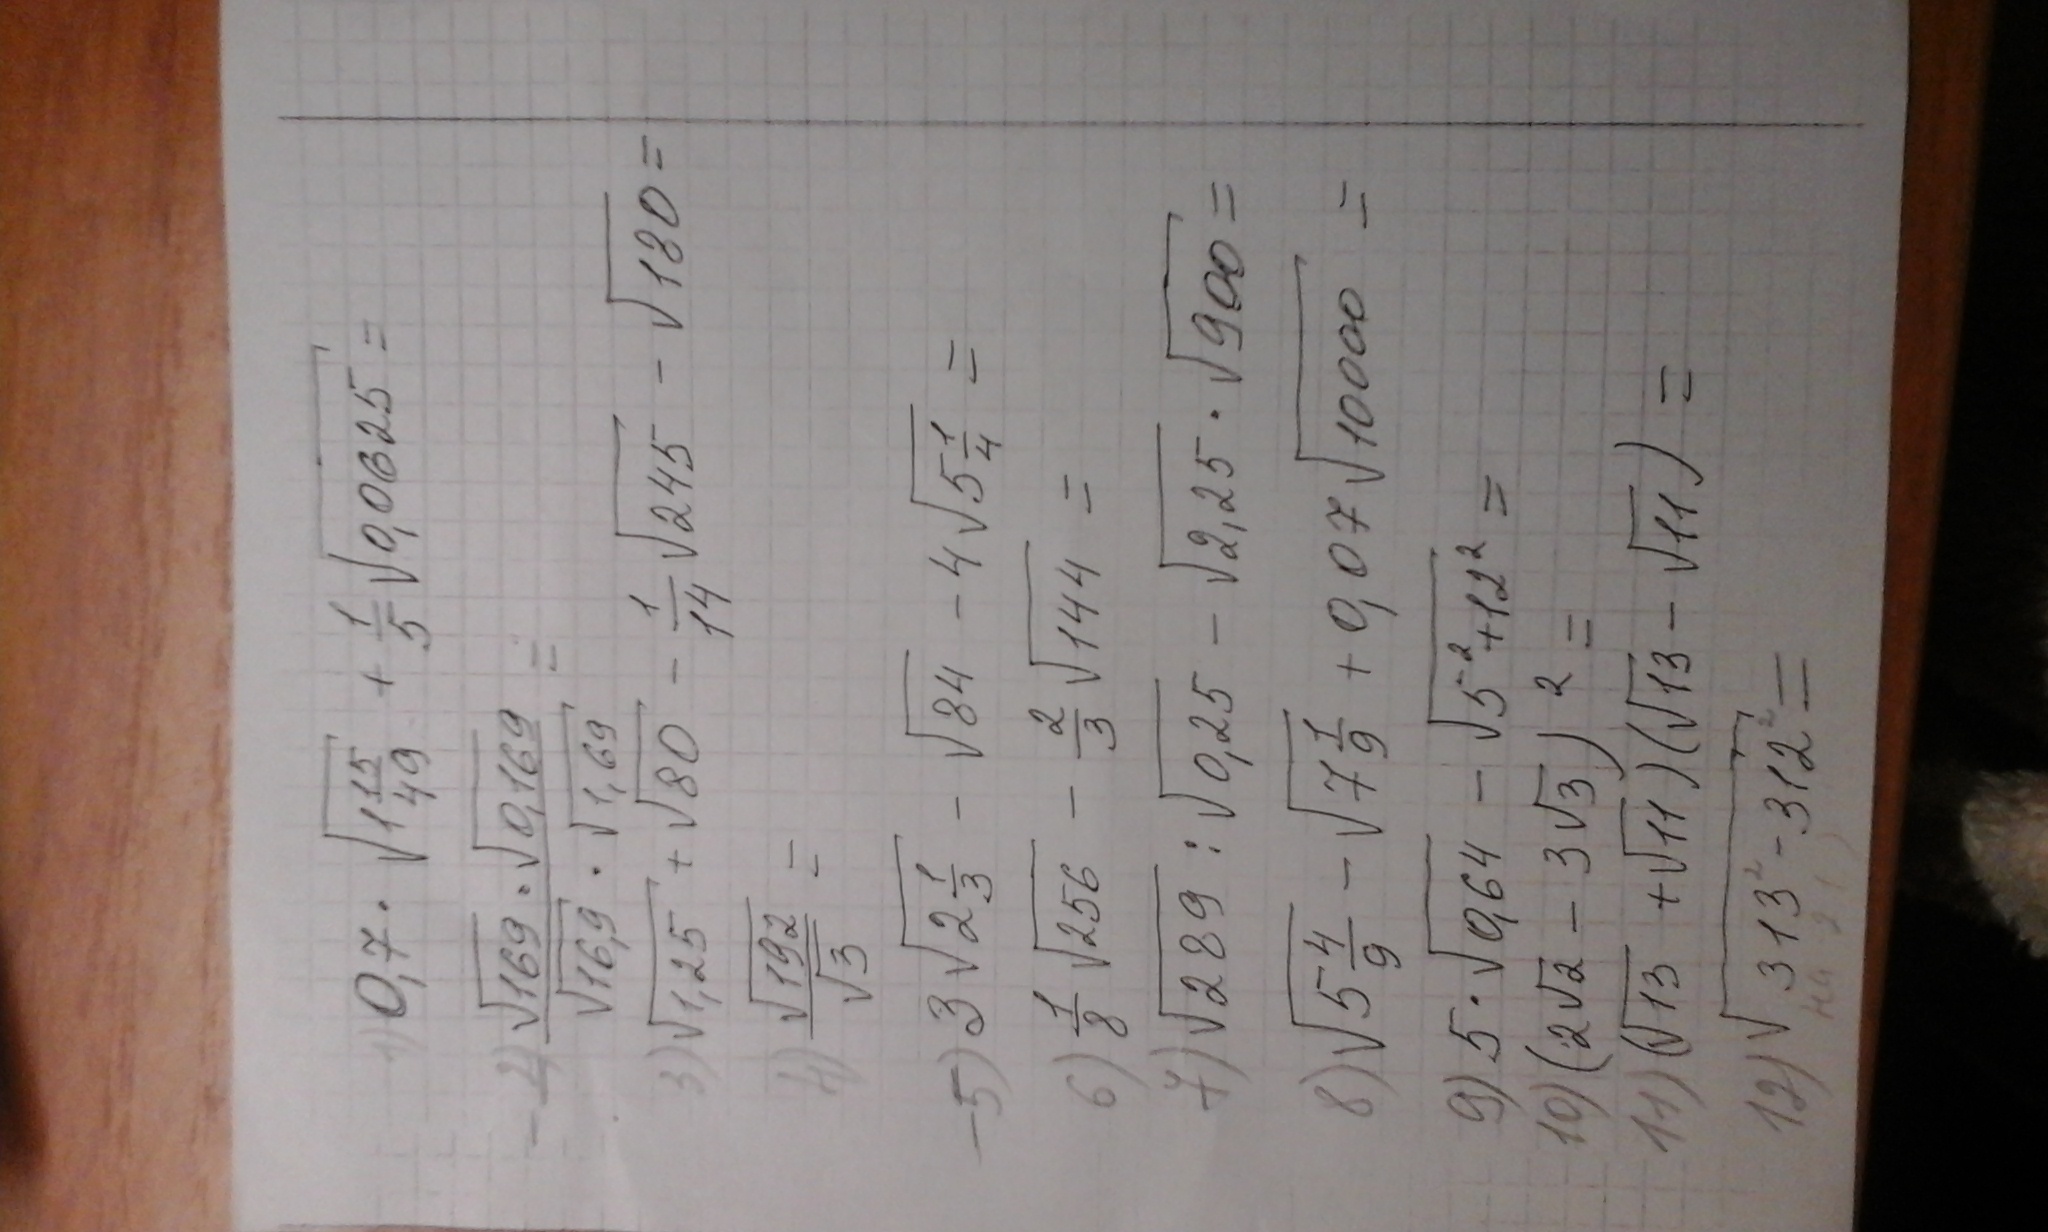 1) 0,7 · √(1 15/49) + 1/5 √0,0625 =
2) (√169 · √0,169)/(√16,9 · √1,69) =
3) √1,25 + √80 - 1/14 √245 - √180 =
4) √192/√3 =
5) 3√(2 1/3) - √84 - 4√(5 1/4) =
6) 1/8 √256 - 2/3 √144 =
7) √289 : √0,25 - √2,25 · √900 =
8) √(5 4/9) - √(7 1/9) + 0,07√10000 =
9) 5 · √0,64 - √(5² + 12²) =
10) (2√2 - 3√3)² =
11) (√13 + √11)(√13 - √11) =
12) √(313² - 312²) =